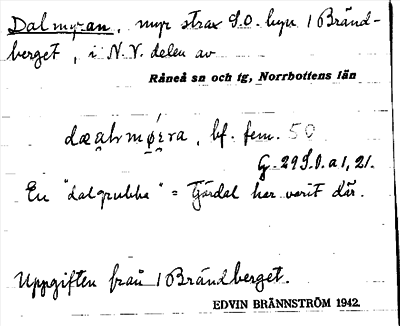 Dalmyran, myr strax S.O. byn 1 Bränd-
berget, i N.V. delen av
Råneå sn och tg, Norrbottens län
bf. fem. 50
G. 29 S.O. a 1, 21.
En "dalgrubba" = Tjärdal har varit där.
Uppgiften från 1 Brändberget.
EDVIN BRÄNNSTRÖM 1942.